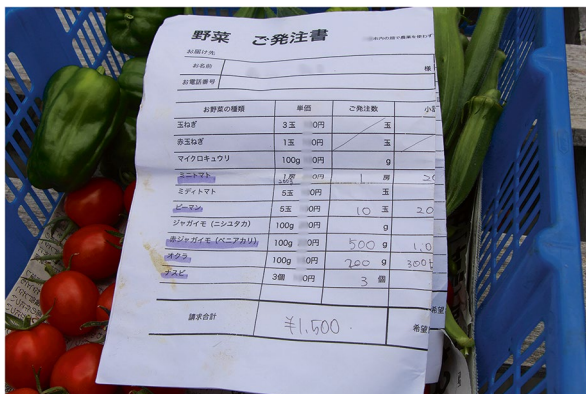 野菜 ご発注書
お届け先
お名前 様
お電話番号
お野菜の種類 単価 ご発注数 小計
玉ねぎ 3玉 0円 玉
赤玉ねぎ 1玉 0円 玉
マイクロキュウリ 100g 0円 g
ミニトマト 1房 0円 1 房 20
ミディトマト 5玉 0円 玉
ピーマン 5玉 0円 10 玉 20
ジャガイモ(ニシユタカ) 100g 0円 g
赤ジャガイモ(ベニアカリ) 100g 0円 500 g 1,0
オクラ 100g 0円 200 g 300
ナスビ 3個 0円 3 個
請求合計 ¥1,500. 希望
希望